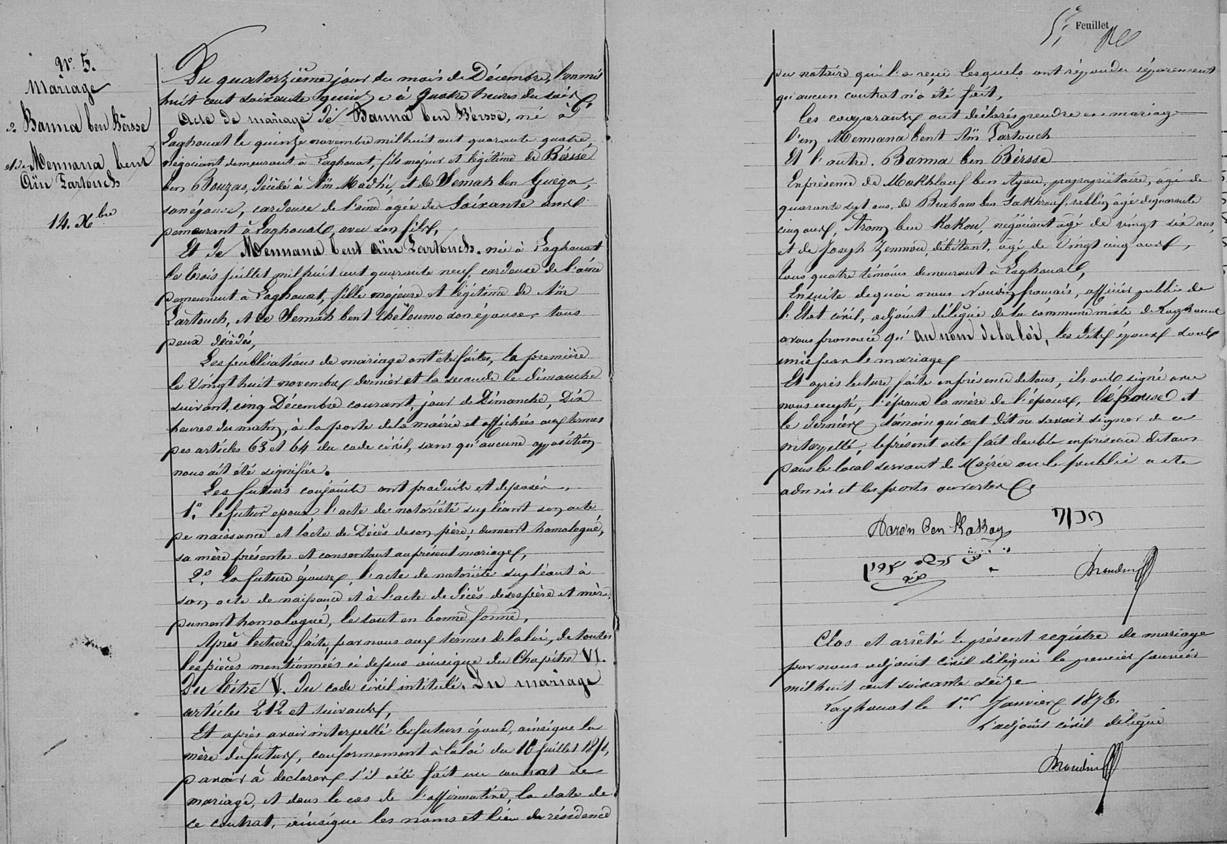 N° 5.
Mariage
de Banna ben Bersse
et de Mennana bent
Aïn Partouch
14. Xbre
Du quatorzième jour du mois de Décembre, l'an mil
huit cent soixante quinze à quatre heures du soir
Acte de mariage de Banna ben Bersse, né à
Laghouat le quinze novembre mil huit cent quarante quatre,
négociant demeurant à Laghouat, fils majeur et légitime de Bersse
ben Bouzas, décédé à Aïn Madhi, et de Semah ben Guega,
son épouse, cardeuse de laine agée de Soixante ans
demeurant à Laghouat, avec son fils,
Et de Mennana bent Aïn Partouch, née à Laghouat
le trois juillet mil huit cent quarante neuf, cardeuse de laine
demeurant à Laghouat, fille majeure et légitime de Aïn
Partouch, et de Semah bent Cheloumo son épouse, tous
deux décédés,
Les publications de mariage ont été faites, la première
le Vingt huit novembre dernier et la seconde le dimanche
suivant, cinq Décembre courant, jour de Dimanche, Dix
heures du matin, à la porte de la mairie et affichées aux termes
des articles 63 et 64 du code civil, sans qu'aucune opposition
nous ait été signifiée.
Les futurs conjoints ont produits et déposés,
1.° le futur epoux l'acte de notoriété supléant son acte
de naissance et l'acte de Décès de son père, dument homologué,
sa mère présente et consentant au présent mariage,
2.° La future épouse l'acte de notoriété supléant à
son acte de naissance et à l'acte de Décès de ses père et mère
dument homologué, le tout en bonne forme,
Après lecture faite par nous aux termes de la loi, de toutes
les pièces mentionnées ci dessus ainsi que du Chapitre VI.
Du titre V. du code civil intitulé, Du mariage
articles 212 et suivants,
Et après avoir interpellé les futurs époux, ainsi que la
mère du futur, conformement à la loi du 10 Juillet 1850,
d'avoir à declarer s'il a été fait un contrat de
mariage, et dans le cas de l'affirmative, la date de
ce contrat, ainsi que les noms et lieu de résidence
5e Feuillet
du notaire qui l'a reçu lesquels ont répondu séparément
qu'aucun contrat n'a été fait,
les comparants ont déclarés prendre en mariage
l'un Mennana bent Aïn Partouch
Et l'autre. Banna ben Bersse
En présence de Makhlouf ben Ayou, propriétaire, âgé de
quarante sept ans, de ben Lakhrouf, rabbin, agé de quarante
cinq ans, ben Kakou, négociant âgé de vingt six ans
et de Joseph Zennou, débitant, agé de Vingt cinq ans,
tous quatre témoins demeurant à Laghouat,
Ensuite de quoi nous François, officier public de
l'Etat civil, adjoint délégué de la commune mixte de Laghouat
avons prononcé qu'au nom de la loi, les dits époux sont
unis par le mariage,
Et après lecture faite en présence de tous, ils ont signé avec
nous excepté, l'époux la mère de l'epoux, l'épouse et
le dernière témoin qui ont dit ne savoir signer de ce
interpellé, le présent acte fait double en présence de tous
dans le local servant de Mairie ou le public a été
admis et les portes ouvertes
Clos et arrêté le présent registre de mariage
par nous adjoint civil délégué le premier Janvier
mil huit cent soixante seize
Laghouat le 1er Janvier 1876.
L'adjoint civil délégué